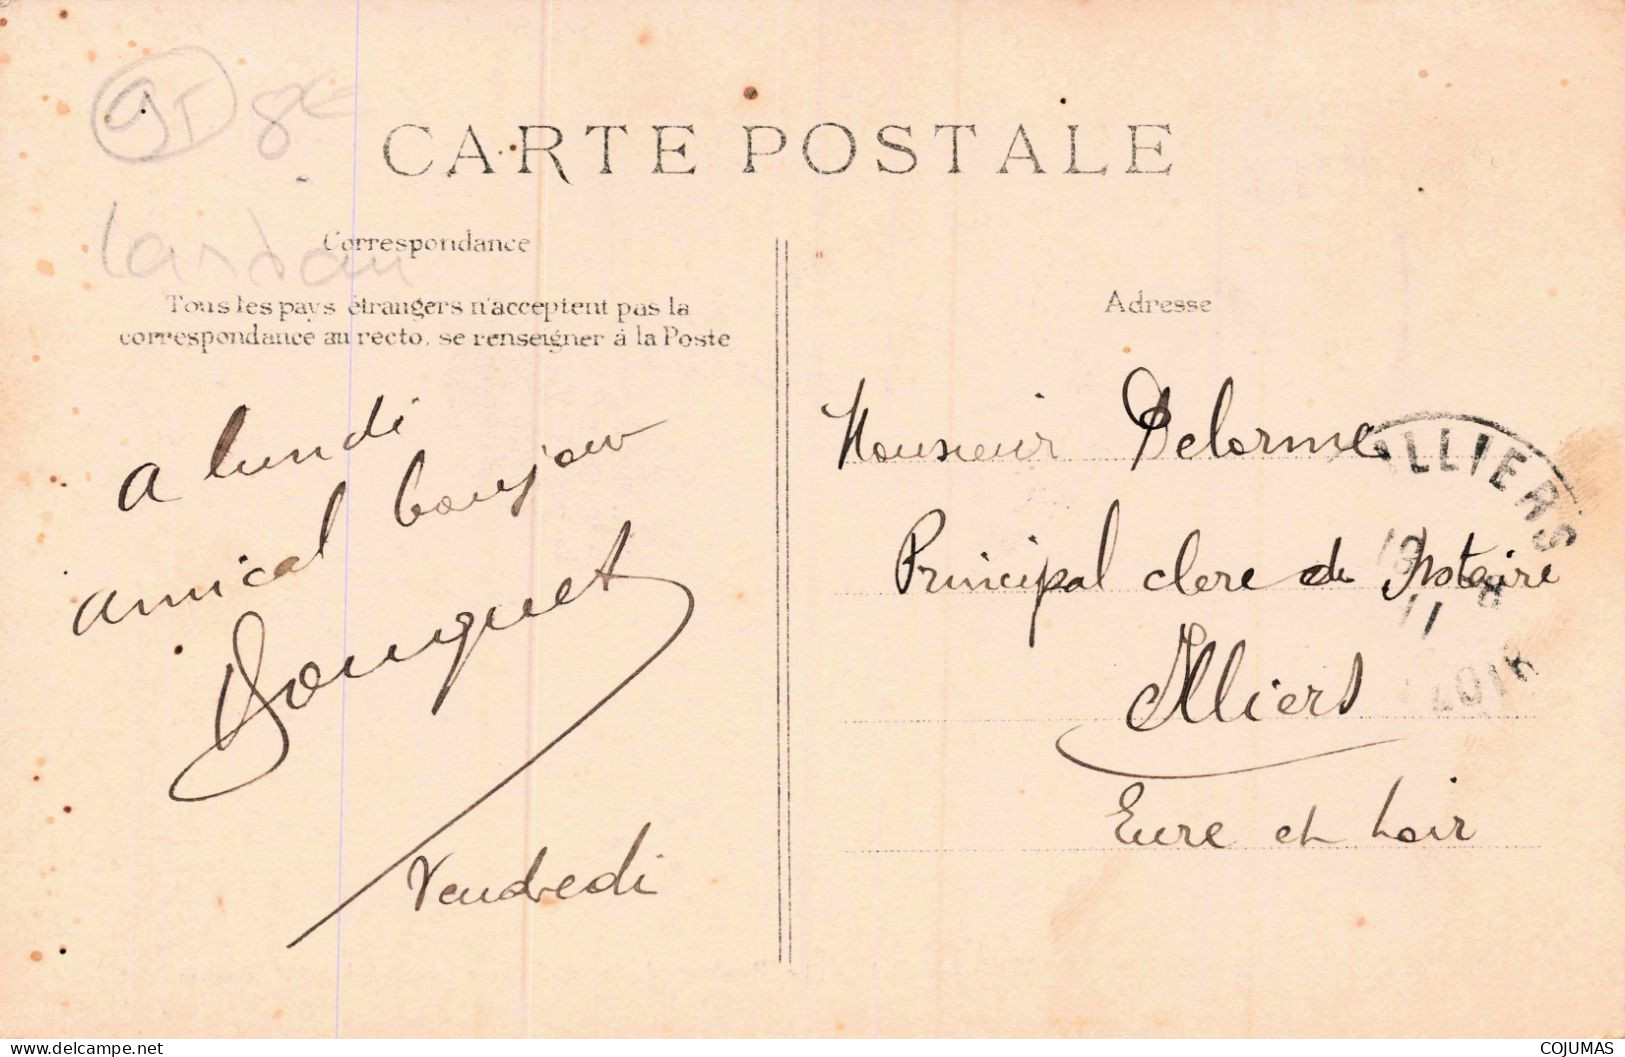 95 8€
CARTE POSTALE
Correspondance
Tous les pays étrangers n'acceptent pas la
correspondance au recto, se renseigner à la Poste
A lundi
amical bonjour
Bouquet
Vendredi
Adresse
Monsieur Delorme
Principal clerc de Notaire
Illiers
Eure et Loir
ILLIERS
11
LOIR
www.delcampe.net
COJUMAS